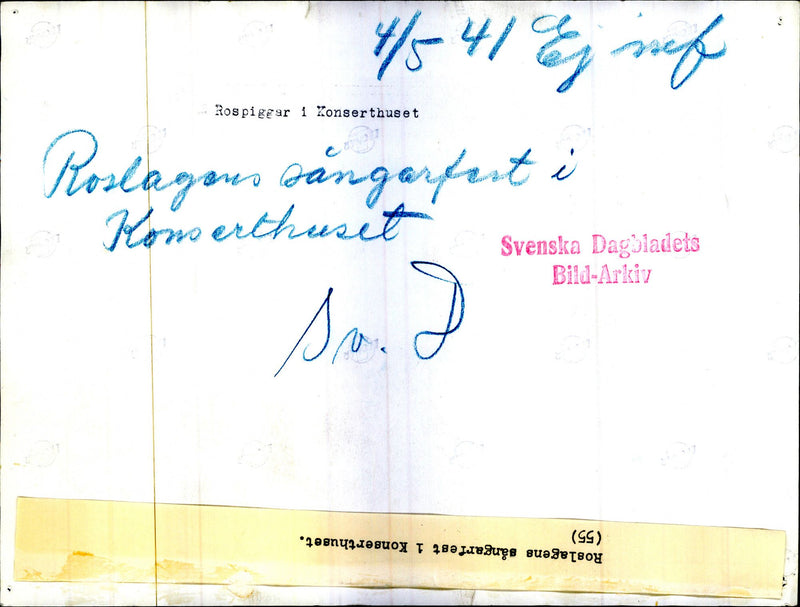 4/5 41 Ej
Rospiggar i Konserthuset
Roslagens sångarfest i
Konserthuset
Svenska Dagbladets
Bild-Arkiv
Sv. D
Roslagens sångarfest i Konserthuset.
(55)